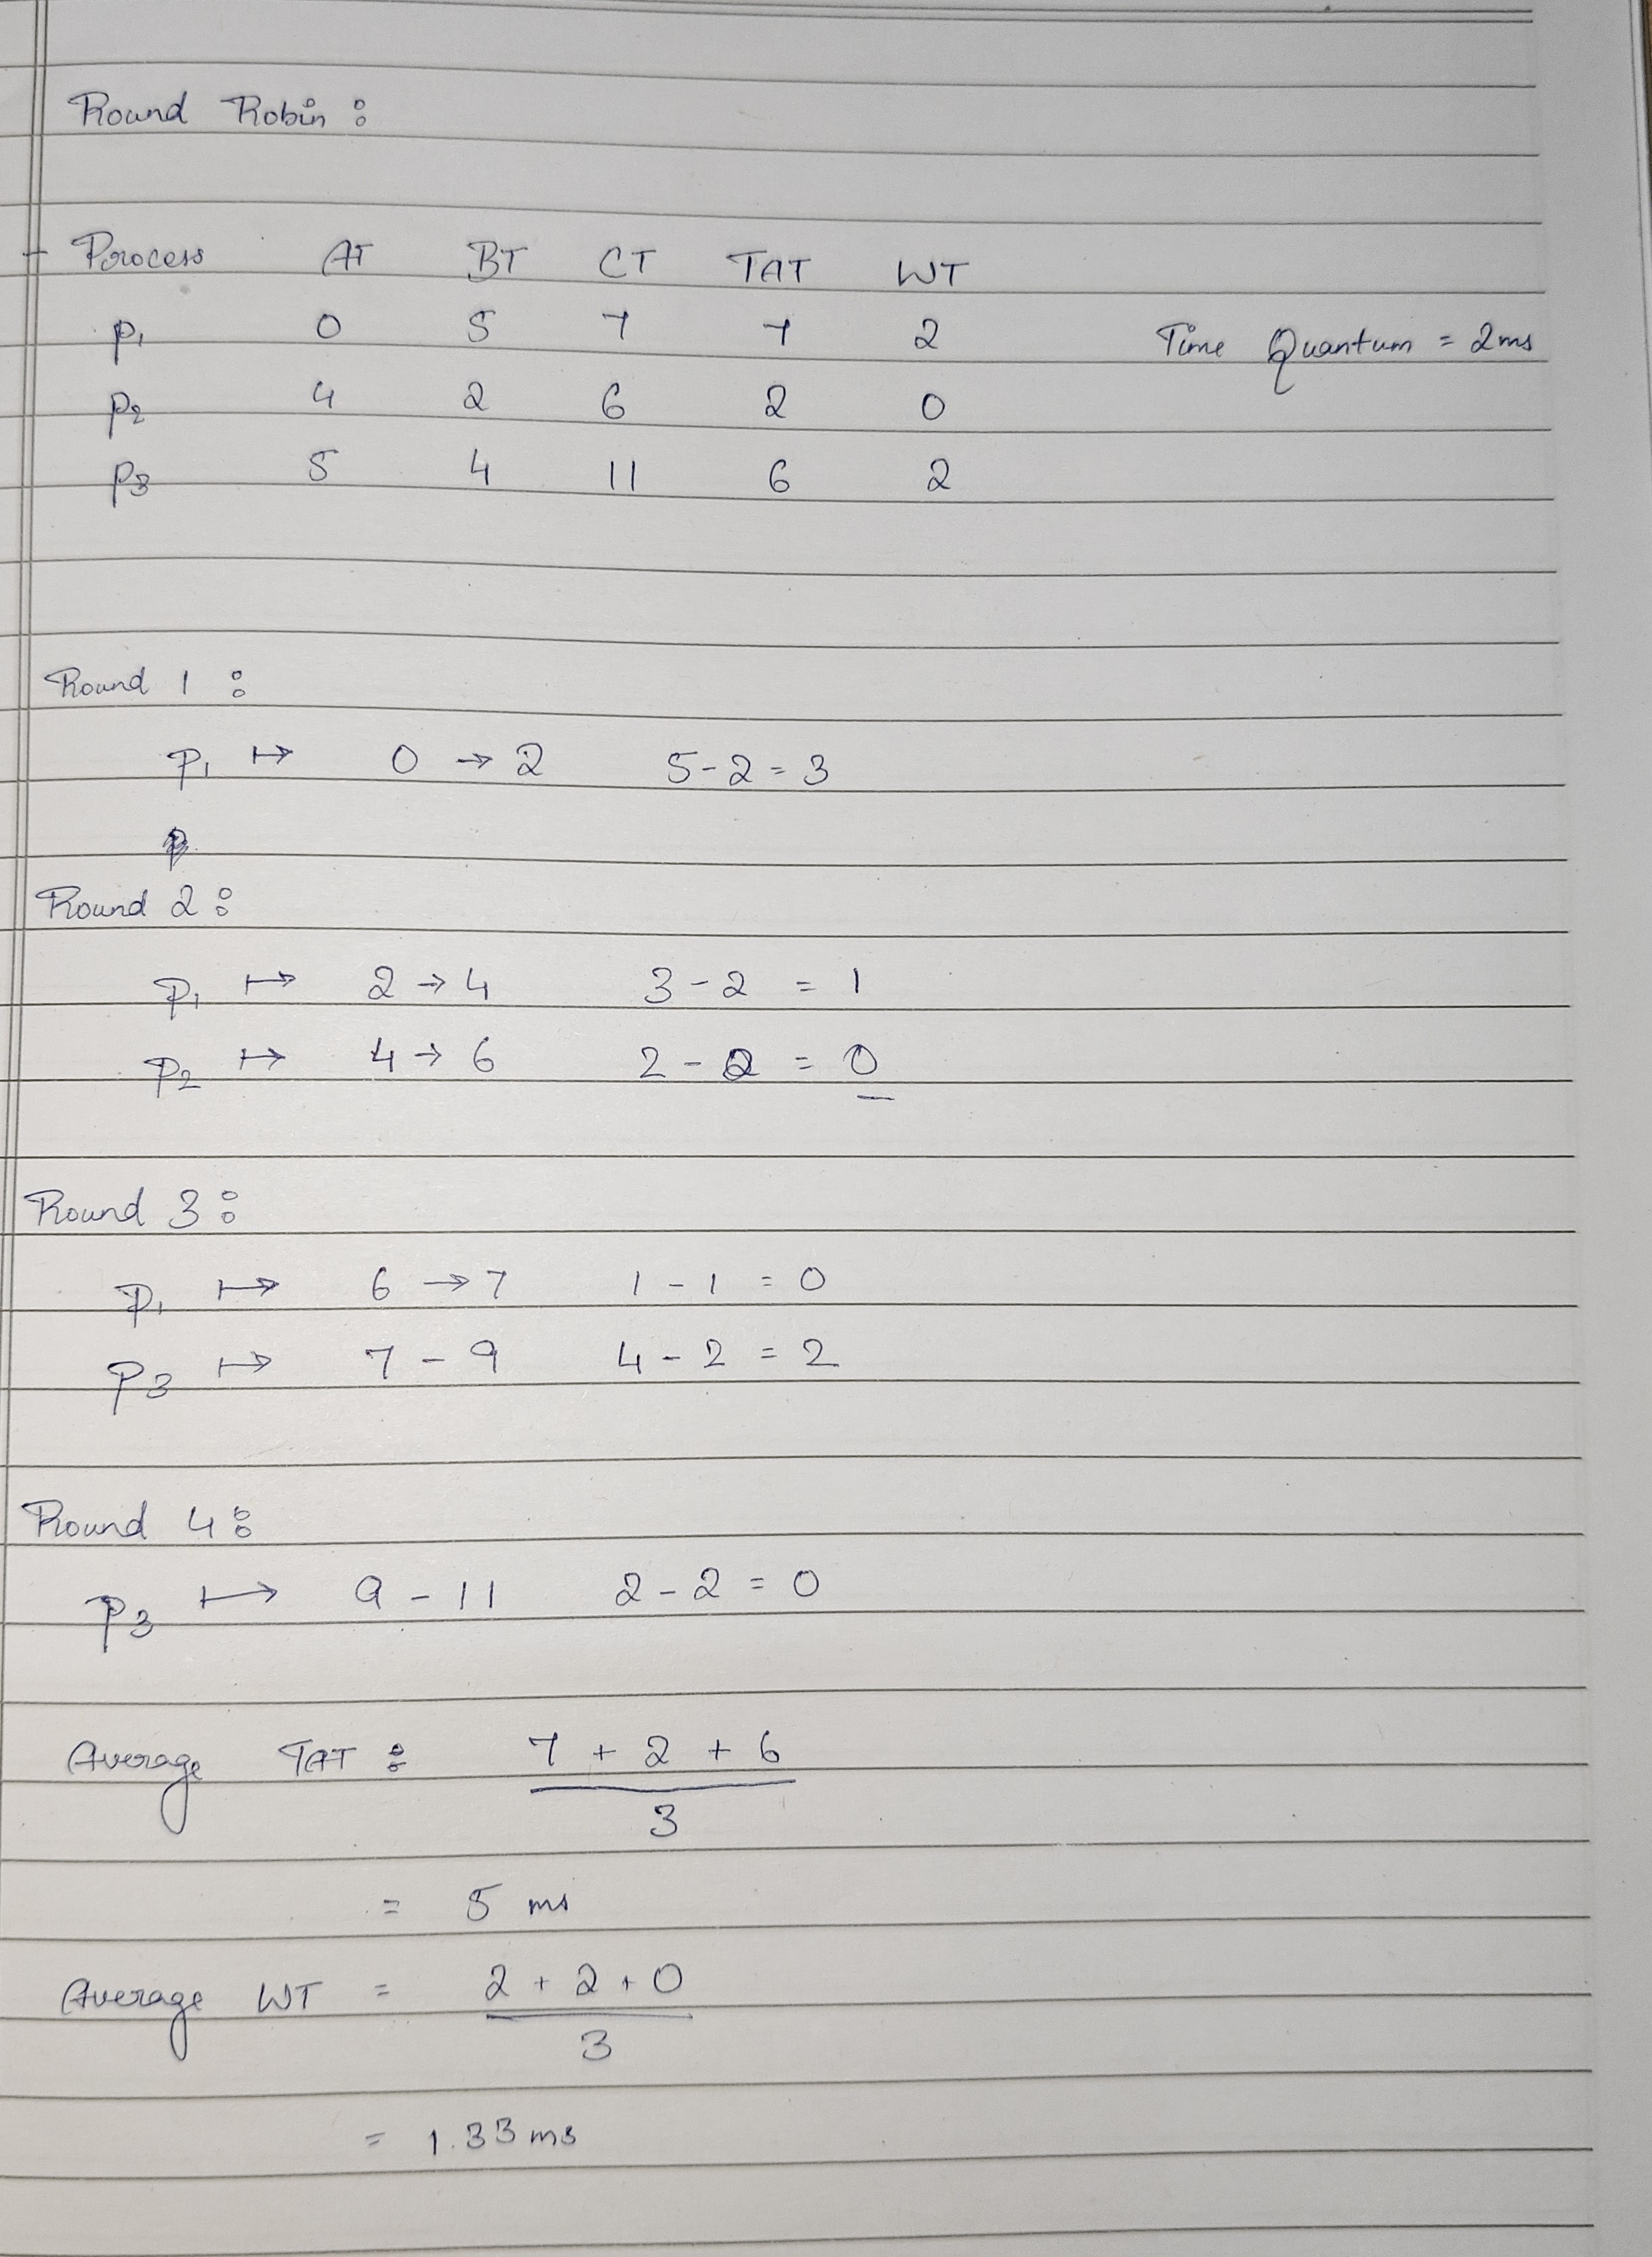 Round Robin :
Process AT BT CT TAT WT
P1 0 5 7 7 2 Time Quantum = 2ms
P2 4 2 6 2 0
P3 5 4 11 6 2
Round 1 :
P1 ↦ 0 → 2 5-2 = 3
Round 2 :
P1 ↦ 2 → 4 3-2 = 1
P2 ↦ 4 → 6 2-2 = 0
Round 3 :
P1 ↦ 6 → 7 1-1 = 0
P3 ↦ 7 - 9 4-2 = 2
Round 4 :
P3 ↦ 9 - 11 2-2 = 0
Average TAT : 7 + 2 + 6
3
= 5 ms
Average WT = 2 + 2 + 0
3
= 1.33 ms